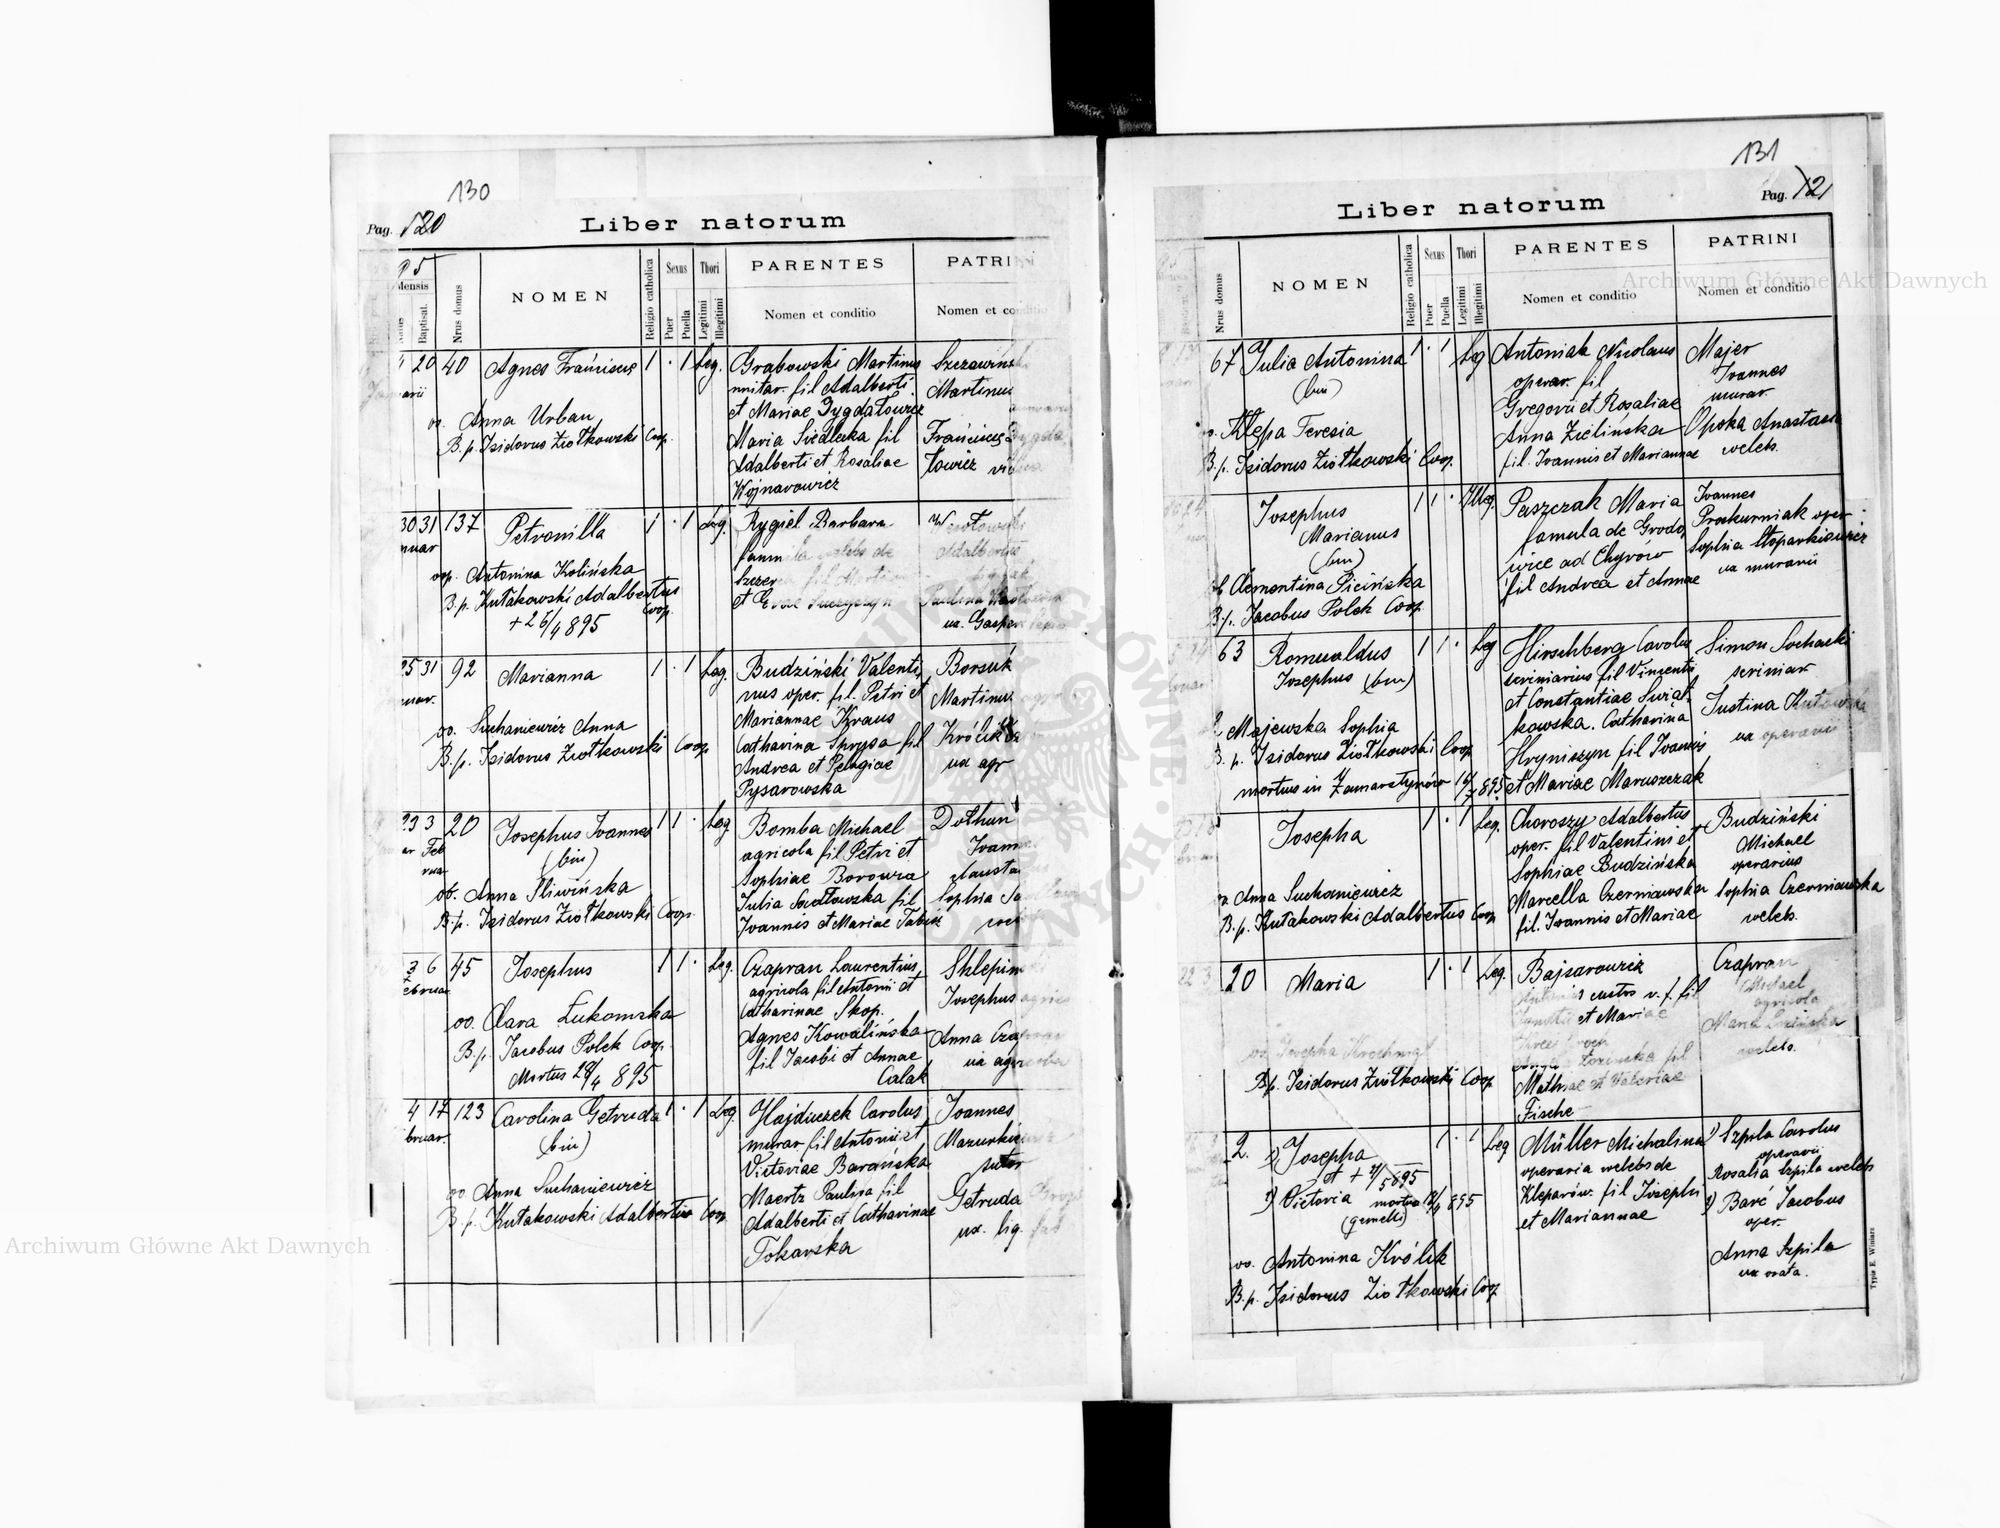 130
Pag. 120
Liber natorum
95
Mensis
Baptisat.
Nrus domus
NOMEN
Religio catholica
Sexus
Puer
Puella
Thori
Legitimi
Illegitimi
PARENTES
Nomen et conditio
PATRINI
Nomen et conditio
20 40 Agnes Franciscs 1 · 1 Leg. Grabowski Martinus
fil Adalberti
et Mariae Gygdałowicz
Maria Siedlecka fil
Adalberti et Rosaliae
Wojnarowicz
Martinus
Franciscs Gygda
łowicz vidua
oo. Anna Urban
B. p. Isidorus Ziołkowski Coop.
30 31 137 Petronilla 1 · 1 Leg. Rygiel Barbara
famula celebs de
fil Martini
et Evae
Adalbertus
Paulina
ux. Gaspari
oop. Antonina Kolińska
B. p. Kułakowski Adalbertus
Coop.
+ 26/4 895
25 31 92 Marianna 1 · 1 Leg. Budziński Valenti
nus oper. fil. Petri et
Mariannae Kraus
Catharina Sprysa fil
Andrea et Pelagiae
Pysarowska
Borsuk
Martinus
Królik
ux agr
oo. Suchaniewicz Anna
B. p. Isidorus Ziołkowski Coop.
23 3 20 Josephus Joannes 1 1 · Leg Bomba Michael
Feb
ruar
(bin)
agricola fil Petri et
Sophiae Borowra
Julia Sadłowska fil
Joannis et Mariae Tabisz
Dołhun
Joannes
Sophia
ob. Anna Sliwińska
B. p. Isidorus Ziołkowski Coop.
3 6 45 Josephus 1 1 · Leg. Czapran Laurentius
ebruar
agricola fil Antonii et
Catharinae Skop.
Agnes Kowalińska
fil Jacobi et Annae
Calak
Josephus agric
Anna Czapran
ux agricolae
oo. Clara Łukomska
B. p. Jacobus Polek Coop.
Mortus 28/4 895
4 17 123 Carolina Getruda 1 · 1 Leg. Hajduczek Carolus
bruar.
(bin)
murar. fil Antonii et
Victoriae Barańska
Maertz Paulina fil
Adalberti et Catharinae
Tokarska
Joannes
Mazurkiewicz
sutor
Getruda
ux. lig.
oo. Anna Suchaniewicz
B. p. Kułakowski Adalbertus Coop.
131
Pag. 121
Liber natorum
Nrus domus
NOMEN
Religio catholica
Sexus
Puer
Puella
Thori
Legitimi
Illegitimi
PARENTES
Nomen et conditio
PATRINI
Nomen et conditio
67 Julia Antonina 1 · 1 Leg Antoniak Nicolaus
(bin)
operar. fil
Gregorii et Rosaliae
Anna Zielińska
fil. Joannis et Mariannae
Majer
Joannes
murar.
Opoka Anastasia
celebs.
o. Klepa Teresia
B. p. Isidorus Ziołkowski Coop.
Josephus 1 1 · Illeg. Paszczak Maria
Marianus
(bin)
famula de Grodo
wice ad Chyrow
fil Andrea et Annae
Joannes
Prockurniak oper
Sophia Stoparkiewicz
ux murarii
ob Clementina Picińska
B. p. Jacobus Polek Coop.
63 Romualdus 1 1 · Leg Hirschberg Carolus
Josephus (bin)
scriniarius fil Vincentii
et Constantiae Świąt
kowska. Catharina
Hryniszyn fil Joannis
et Mariae Maruszczak
Simon Sochacki
scriniar
Justina
ux operarii
Majewska Sophia
B. p. Isidorus Ziołkowski Coop.
mortuus in Zamarstynów 14/7 895
Josepha 1 · 1 Leg. Choroszy Adalbertus
oper. fil Valentini et
Sophiae Budzińska
Marcella Czerniawska
fil. Joannis et Mariae
Budziński
Michael
operarius
Sophia Czerniawska
celebs.
o. Anna Suchaniewicz
B. p. Kułakowski Adalbertus Coop.
22 3 20 Maria 1 · 1 Leg. Bajsarowicz
custos v. f. fil
et Mariae
fil
Mathiae et Valeriae
Fische
Czapran
Michael
agricola
Maria Łozińska
celebs.
oo. Josepha Krochmal
B. p. Isidorus Ziołkowski Coop.
2. 1) Josepha 1 · 1 Leg Müller Michalina
et + 2/5 895
2) Victoria mortua 12/4 895
(gemelli)
operaria celebs de
Kleparów. fil Josephi
et Mariannae
1) Szpila Carolus
operarii
Rosalia Szpila celebs
2) Barć Jacobus
oper.
Anna Szpila
oo. Antonina Królik
B. p. Isidorus Ziołkowski Coop.
Typis E. Winiarz
Archiwum Główne Akt Dawnych
Archiwum Główne Akt Dawnych